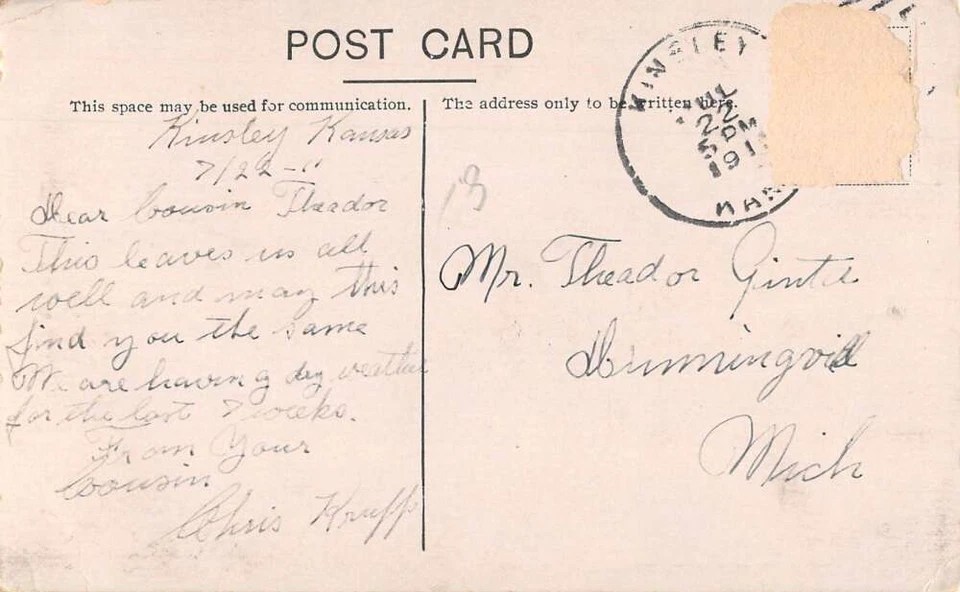 POST CARD
This space may be used for communication.
The address only to be written here.
KINSLEY
JUL
22
5 PM
191
KAN
Kinsley Kansas
7/22-11
Dear Cousin Theador
This leaves us all
well and may this
find you the same
We are having dry weather
for the last 7 weeks.
From Your
Cousin
Chris Krupp
13
Mr. Theador Ginte
Mich